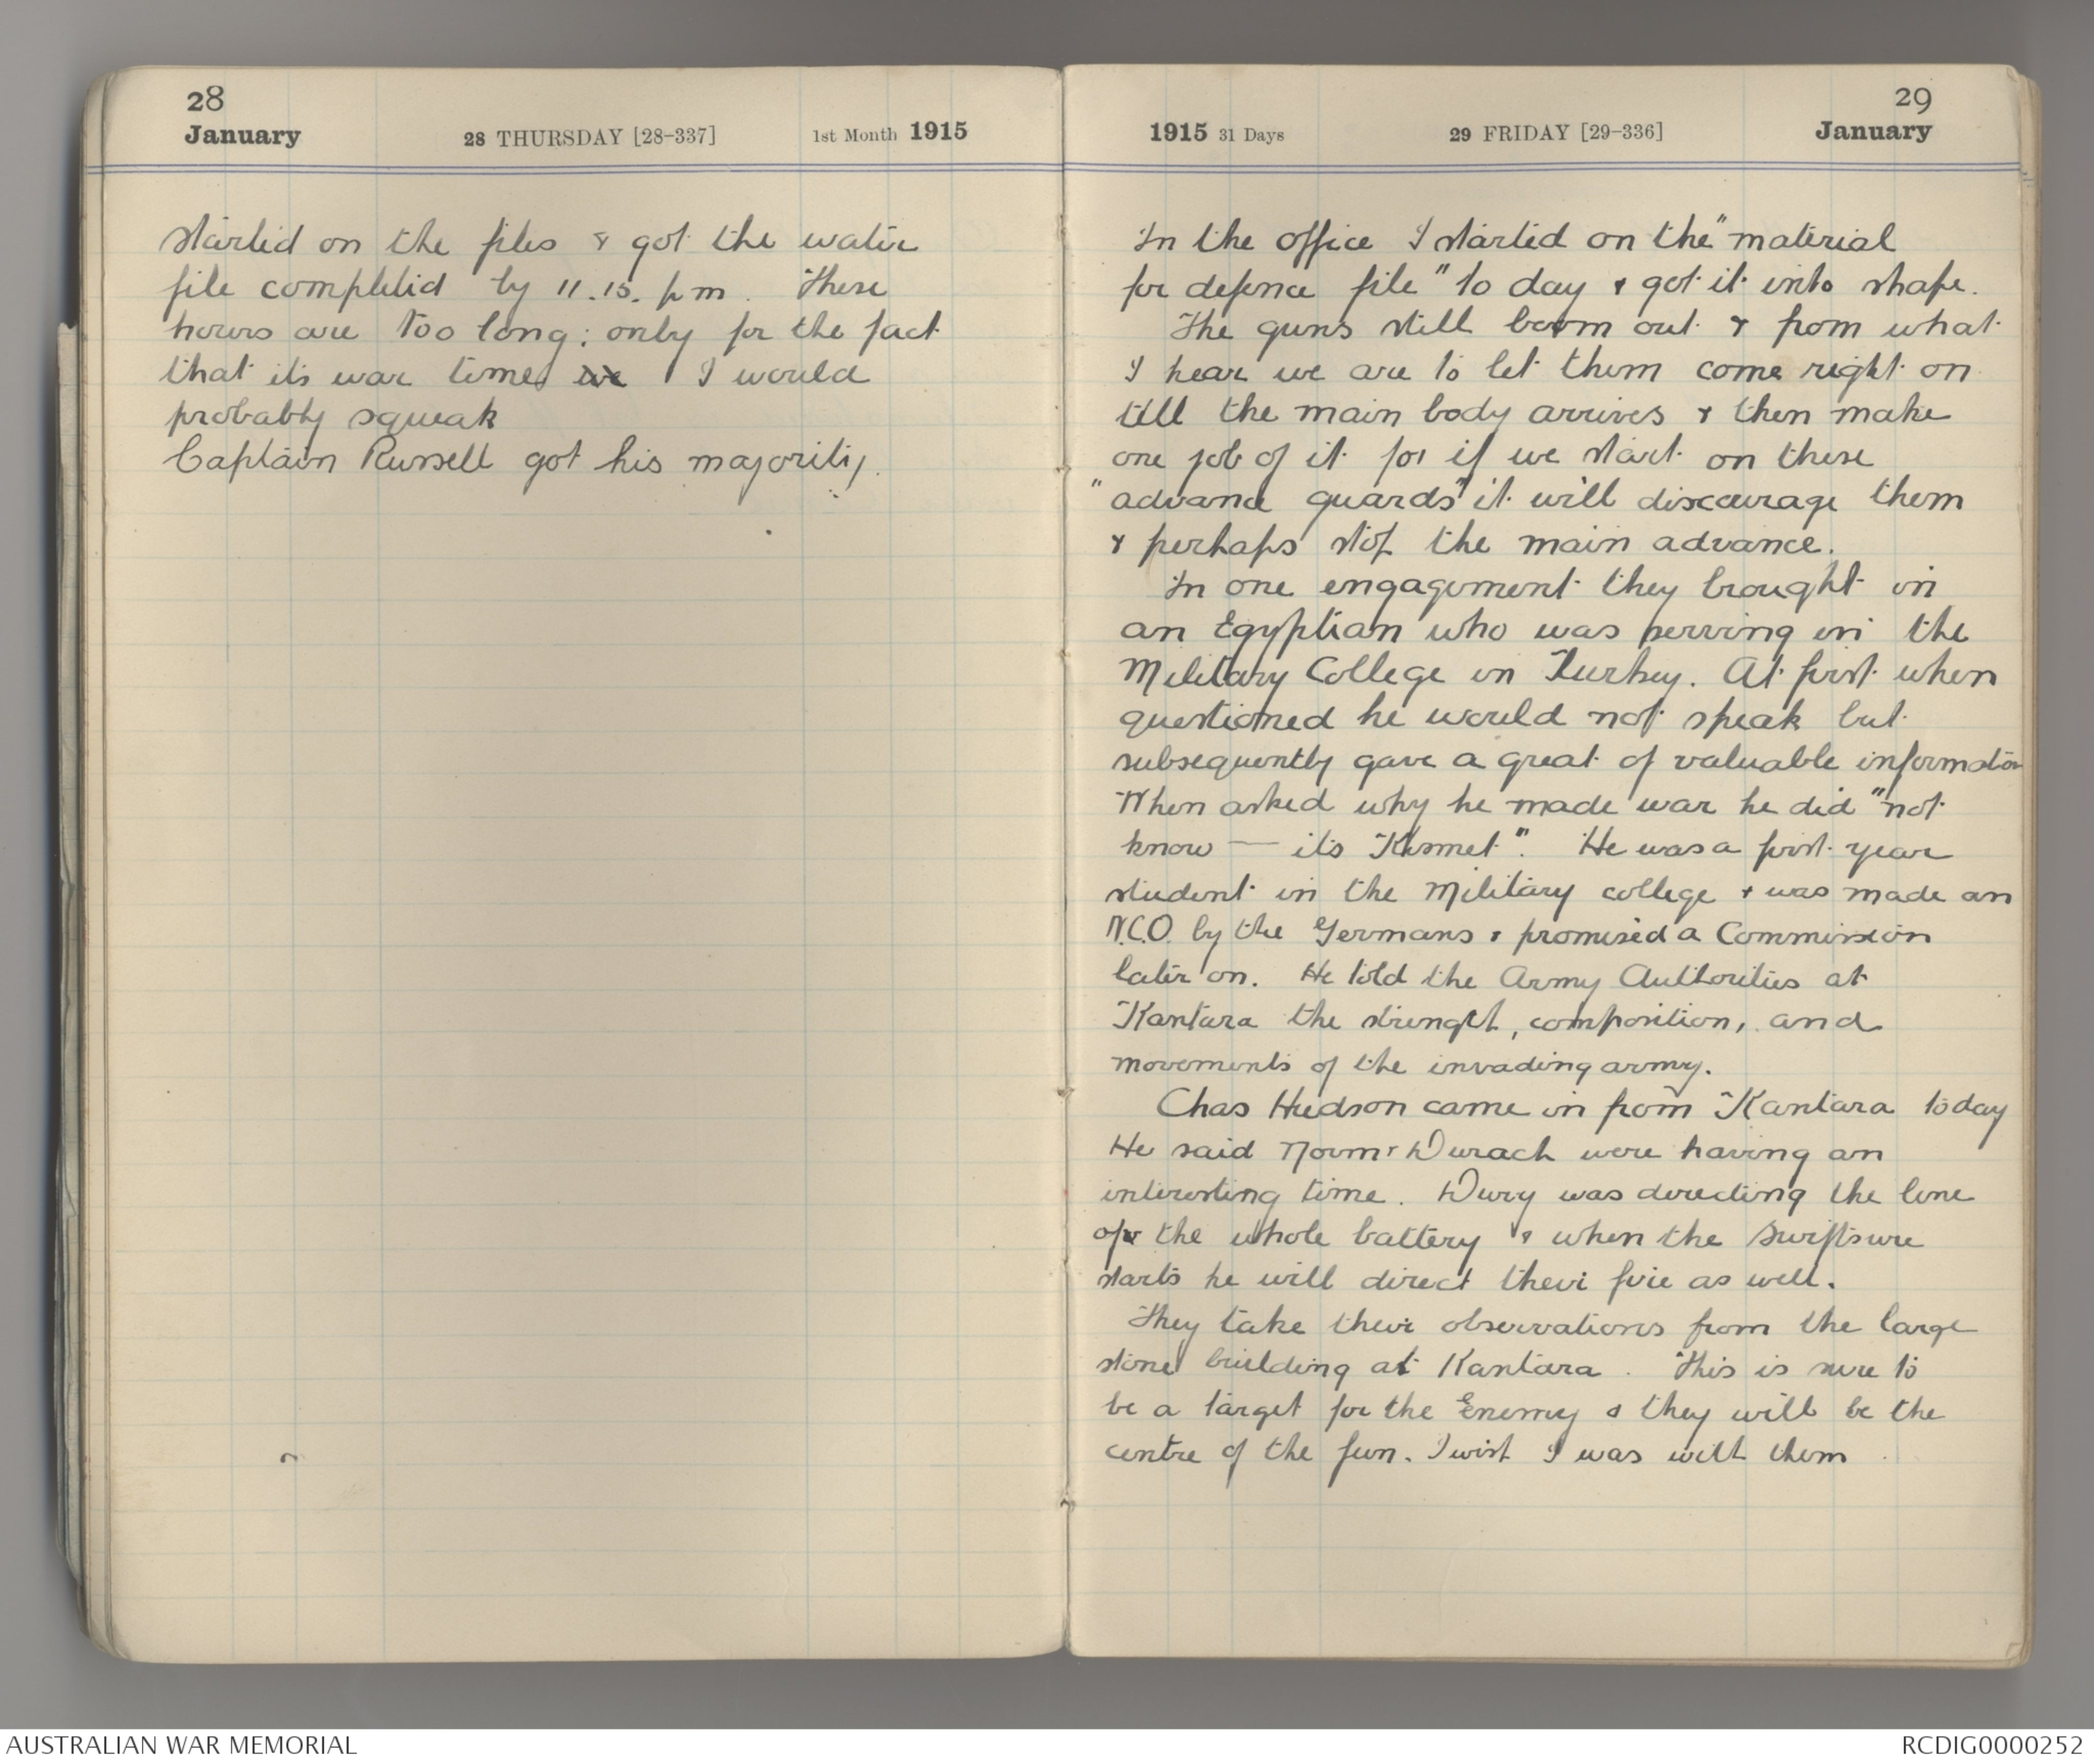 28
January
28 THURSDAY [28-337]
1st Month 1915
started on the files & got the water
file completed by 11.15. pm. These
hours are too long; only for the fact
that its war time, we I would
probably squeak
Captain Russell got his majority.
29
1915 31 Days
29 FRIDAY [29-336]
January
In the office I started on the "material
for defence file" to day & got it into shape.
The guns still boom out & from what
I hear we are to let them come right on
till the main body arrives & then make
one job of it for if we start on these
"advance guards" it will discourage them
& perhaps stop the main advance.
In one engagement they brought in
an Egyptian who was serving in the
Military College in Turkey. At first when
questioned he would not speak but
subsequently gave a great of valuable information
When asked why he made war he did "not
know — its Kismet". He was a first year
student in the Military college & was made an
N.C.O. by the Germans & promised a Commission
later on. He told the Army Authorities at
Kantara the strength, composition, and
movements of the invading army.
Chas Hudson came in from Kantara today
He said Norm & Durach were having an
interesting time. Dury was directing the line
of the whole battery & when the Swiftsure
starts he will direct their fire as well.
They take their observations from the large
stone building at Kantara. This is sure to
be a target for the Enemy & they will be the
centre of the fun. I wish I was with them
AUSTRALIAN WAR MEMORIAL
RCDIG0000252